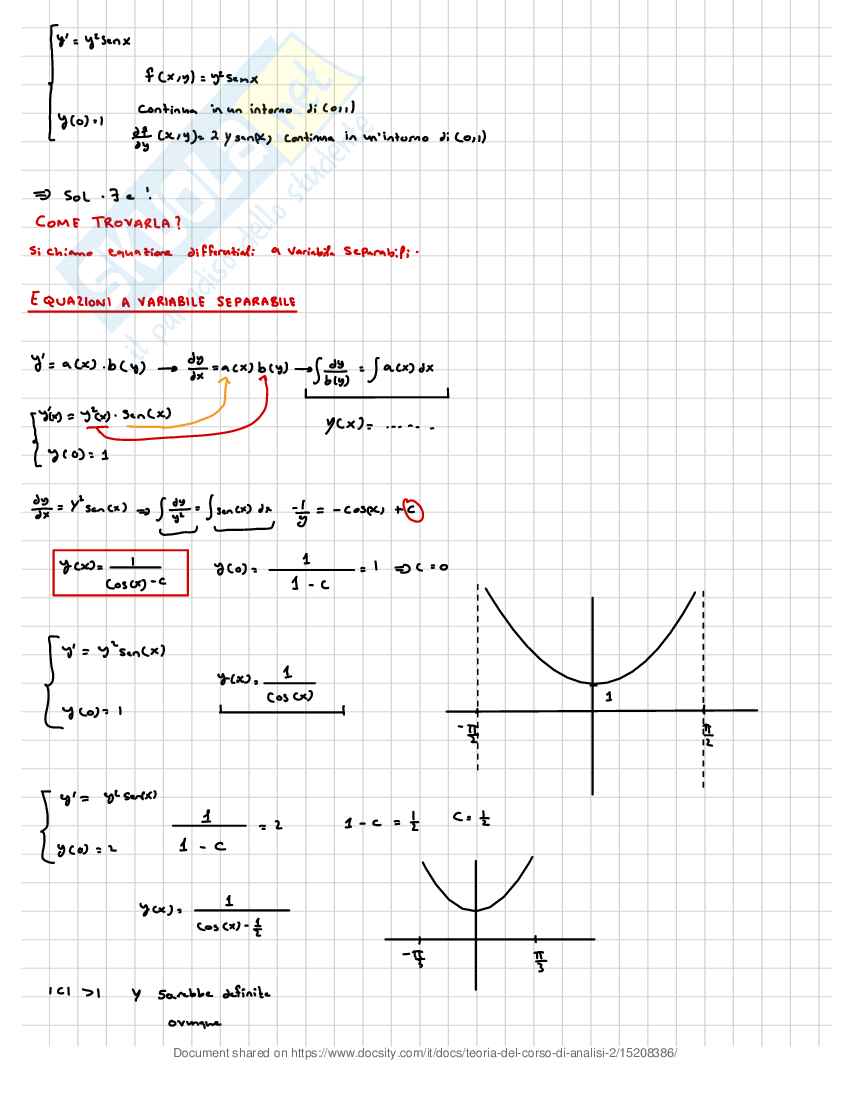 y' = y² sen x
f(x,y) = y² sen x
Continua in un intorno di (0,1)
y(0) = 1
∂f/∂y (x,y) = 2 y sen(x) continua in un'intorno di (0,1)
⇒ Sol. ∃ e !
COME TROVARLA?
Si chiamo equatione differentiali a variabile separabili.
EQUAZIONI A VARIABILE SEPARABILE
y' = a(x) . b(y) → dy/dx = a(x) b(y) → ∫ dy/b(y) = ∫ a(x) dx
y'(x) = y²(x) . sen(x)
y(x) = ......
y(0) = 1
dy/dx = y² sen(x) ⇒ ∫ dy/y² = ∫ sen(x) dx -1/y = -cos(x) + c
y(x) = 1/(cos(x) - c) y(0) = 1/(1 - c) = 1 ⇒ c = 0
y' = y² sen(x)
y(x) = 1/cos(x)
y(0) = 1
1
-π/2 π/2
y' = y² sen(x)
1/(1 - c) = 2 1 - c = 1/2 c = 1/2
y(0) = 2
y(x) = 1/(cos(x) - 1/2)
-π/3 π/3
|c| > 1 y sarebbe definite
ovunque
SKUOLA.net
il paradiso dello studente
Document shared on https://www.docsity.com/it/docs/teoria-del-corso-di-analisi-2/15208386/